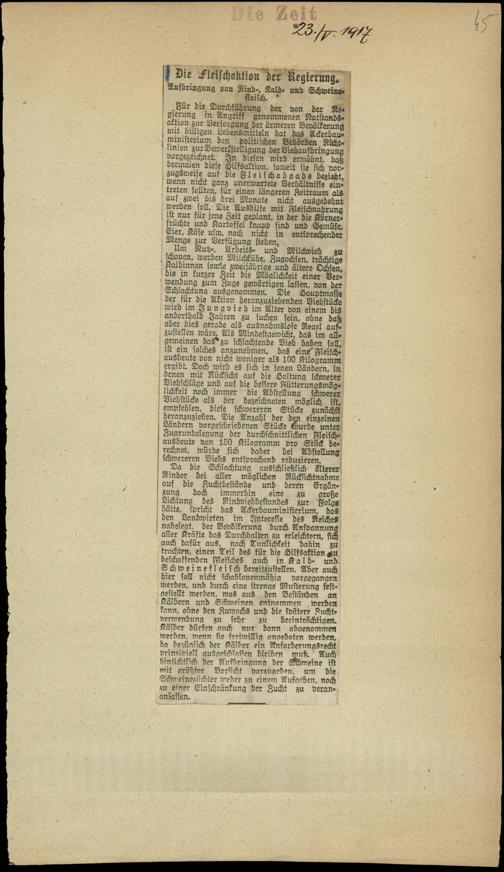 Die Zeit
23./V. 1917
45
Die Fleischaktion der Regierung.
Aufbringung von Rind-, Kalb- und Schweine-
fleisch.
Für die Durchführung der von der Re-
gierung in Angriff genommenen Notstands-
aktion zur Versorgung der ärmeren Bevölkerung
mit billigen Lebensmitteln hat das Ackerbau-
ministerium den politischen Behörden Richt-
linien zur Bewerkstelligung der Viehaufbringung
vorgezeichnet. In diesen wird erwähnt, daß
dermalen diese Hilfsaktion, soweit sie sich vor-
zugsweise auf die Fleischabgabe bezieht,
wenn nicht ganz unerwartete Verhältnisse ein-
treten sollten, für einen längeren Zeitraum als
auf zwei bis drei Monate nicht ausgedehnt
werden soll. Die Aushilfe mit Fleischnahrung
ist nur für jene Zeit geplant, in der die Körner-
früchte und Kartoffel knapp sind und Gemüse,
Eier, Käse usw. noch nicht in entsprechender
Menge zur Verfügung stehen.
Um Nutz-, Arbeits- und Milchvieh zu
schonen, werden Milchkühe, Zugochsen, trächtige
Kalbinnen sowie zweijährige und ältere Ochsen,
die in kurzer Zeit die Möglichkeit einer Ver-
wendung zum Zuge gewärtigen lassen, von der
Schlachtung ausgenommen. Die Hauptmasse
der für die Aktion heranzuziehenden Viehstücke
wird im Jungvieh im Alter von einem bis
anderthalb Jahren zu suchen sein, ohne daß
aber dies gerade als ausnahmslose Regel auf-
zustellen wäre. Als Mindestgewicht, das im all-
gemeinen das zu schlachtende Vieh haben soll,
ist ein solches anzunehmen, das eine Fleisch-
ausbeute von nicht weniger als 100 Kilogramm
ergibt. Doch wird es sich in jenen Ländern, in
denen mit Rücksicht auf die Haltung schwerer
Viehschläge und auf die bessere Fütterungsmög-
lichkeit noch immer die Abstellung schwerer
Viehstücke als der bezeichneten möglich ist,
empfehlen, diese schwereren Stücke zunächst
heranzuziehen. Die Anzahl der den einzelnen
Ländern vorgeschriebenen Stücke wurde unter
Zugrundelegung der durchschnittlichen Fleisch-
ausbeute von 150 Kilogramm pro Stück be-
rechnet, würde sich daher bei Abstellung
schwereren Viehs entsprechend reduzieren.
Da die Schlachtung ausschließlich älterer
Rinder bei aller möglichen Rücksichtnahme
auf die Zuchtbestände und deren Ergän-
zung doch immerhin eine zu große
Lichtung des Rindviehbestandes zur Folge
hätte, spricht das Ackerbauministerium, das
den Landwirten im Interesse des Reiches
nahelegt, der Bevölkerung durch Anspannung
aller Kräfte das Durchhalten zu erleichtern, sich
auch dafür aus, nach Tunlichkeit dahin zu
trachten, einen Teil des für die Hilfsaktion zu
beschaffenden Fleisches auch in Kalb- und
Schweinefleisch bereitzustellen. Aber auch
hier soll nicht schablonenmäßig vorgegangen
werden, und durch eine strenge Musterung fest-
gestellt werden, was aus den Beständen an
Kälbern und Schweinen entnommen werden
kann, ohne den Zuwachs und die spätere Zucht-
verwendung zu sehr zu beeinträchtigen.
Kälber dürfen auch nur dann abgenommen
werden, wenn sie freiwillig angeboten werden,
da bezüglich der Kälber ein Anforderungsrecht
prinzipiell ausgeschlossen bleiben muß. Auch
hinsichtlich der Aufbringung der Schweine ist
mit größter Vorsicht vorzugehen, um die
Schweinezüchter weder zu einem Aufgeben, noch
zu einer Einschränkung der Zucht zu veran-
lassen.